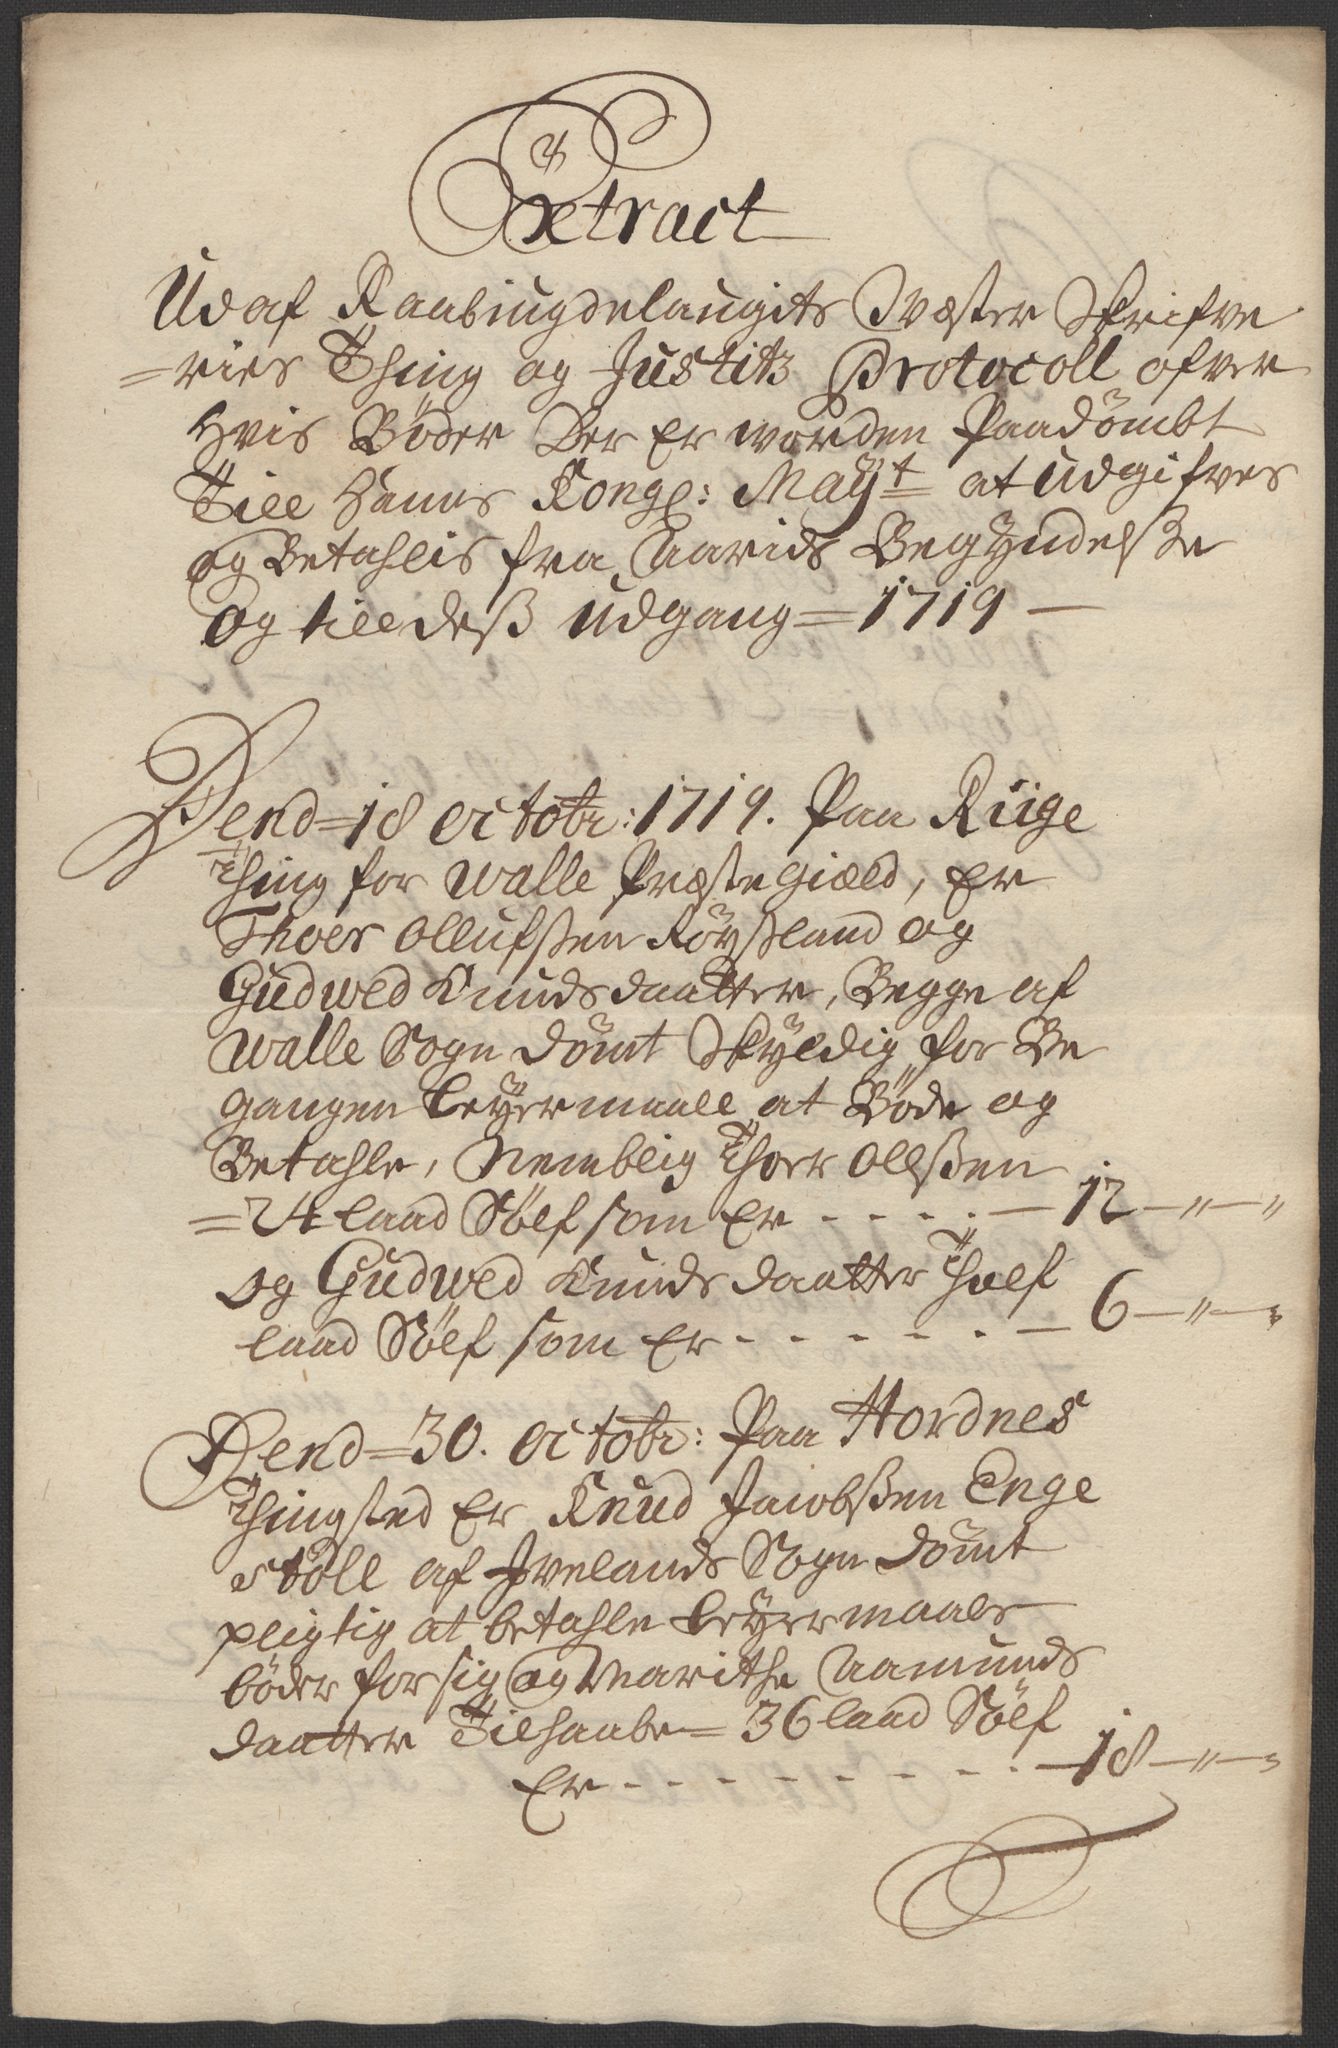 Extract
Udaf Raabiugdelaugits Wæster Skrifve
=ries Thing og Justitz Protocoll ofver
Hvis Böder Der Er worden Paadömbt
Till Hanns Kongl: Mayt at udgifves
og Betahlis fra Aarids Begÿndelsße
og till deß udgang = 1719 —
Dend = 18 octobr: 1719. Paa Riige
Thing for Walle Præstegiæld, Er
Thoer Ollufsßen Röÿsland og
Gudwed Knudsdaatter, Begge af
Walle Sogn dömt Skÿldig for Be
gangen Leÿermaall at Böde og
Betahle, Nemblig Thoer Ollsßen
= 24 laad Sölf som Er - - - - — 12 — „ — „
og Gudwed Knuds daatter Tholf
laad Sölf som Er - - - - - - — 6 — „ — „
Dend = 30. octobr: Paa Hordnes
Thingsted Er Knud Jacobsßen Enge
stöll af Ivelands Sogn dömt
pligtig at betahle Leÿermaals
böder for sig og Marithe Aamunds
daatter Tilhaabe = 36 laad Sölf
Er - - - - - - - - - — 18 — „ — „